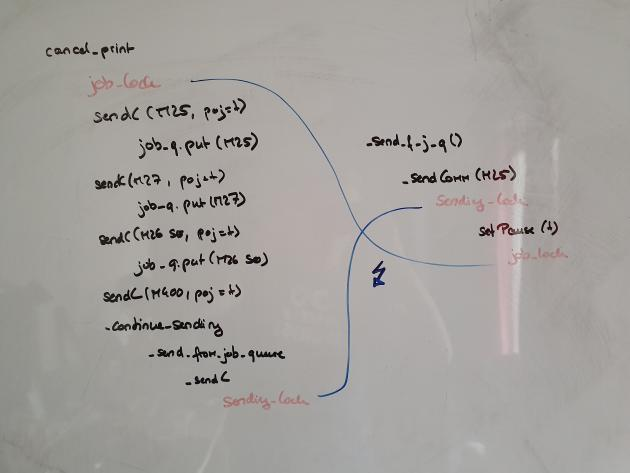 cancel_print
job_lock
sendC (M25, poj=t)
job_q.put (M25)
sendC (M27, poj=t)
job_q.put (M27)
sendC (M26 S0, poj=t)
job_q.put (M26 S0)
sendC (M400, poj=t)
_continue_sending
_send_from_job_queue
_sendC
Sending_lock
_send_f_j_q ()
_sendComm (M25)
Sending_lock
setPause (t)
job_lock